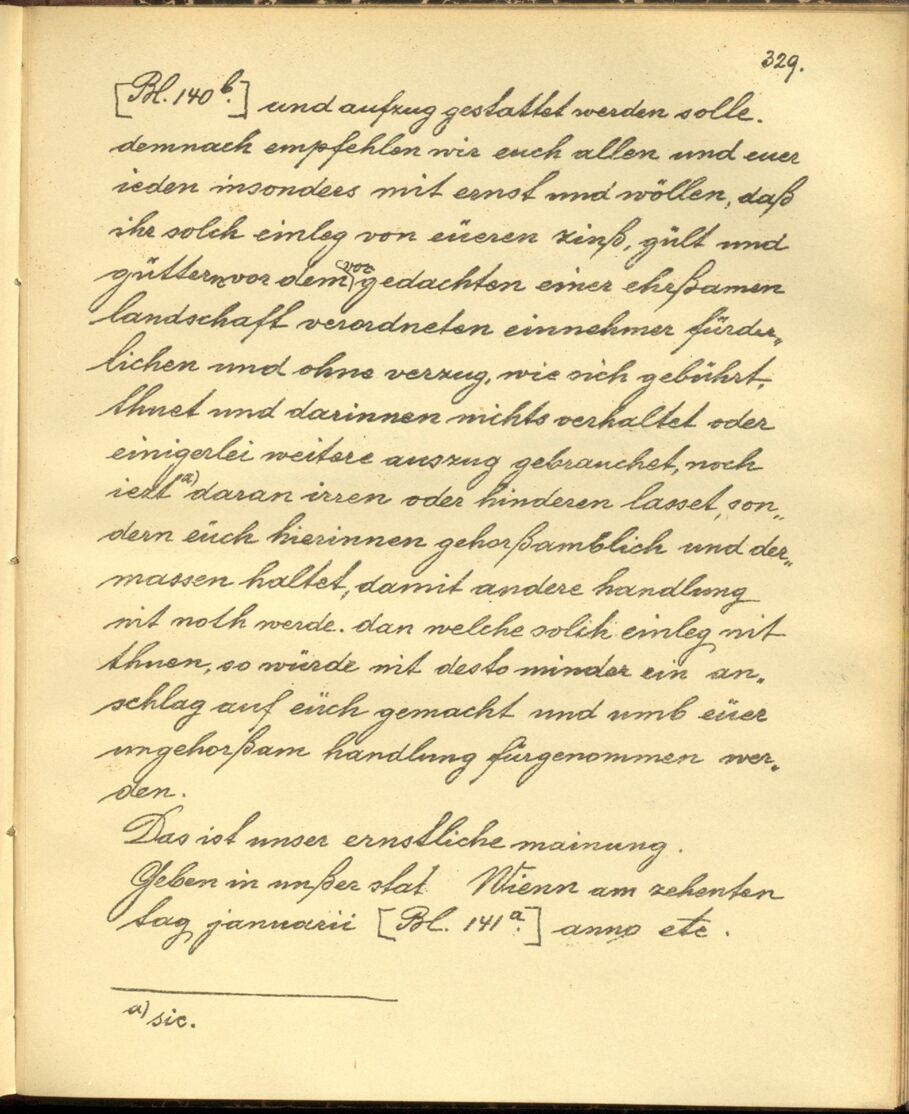 329.
[Bl. 140 b.] und aufzug gestattet werden solle.
demnach empfehlen wir euch allen und euer
ieden insonders mit ernst und wöllen, daß
ihr solch einleg von eüeren zinß, gült und
güttern vor dem vorgedachten einer ehrßamen
landschaft verordneten einnehmer fürder„
lichen und ohne verzug, wie sich gebührt,
thuet und darinnen nichts verhaltet oder
einigerlei weitere auszug gebrauchet, noch
iezt a) daran irren oder hinderen lasset, son„
dern eüch hierinnen gehorßamblich und der„
massen haltet, damit andere handlung
nit noth werde. dan welche solch einleg nit
thuen, so würde nit desto minder ein an„
schlag auf eüch gemacht und umb eüer
ungehorßam handlung fürgenommen wer„
den.
Das ist unser ernstliche mainung.
Geben in unßer stat Wienn am zehenten
tag januarii [Bl. 141 a.] anno etc.
a) sic.